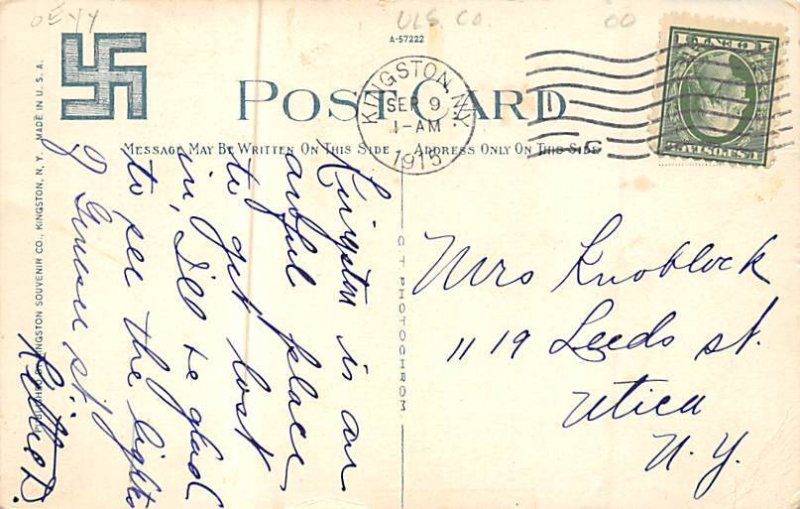 ULS. CO.
00
A-57222
POST CARD
KINGSTON, N.Y.
SEP 9
1-AM
1915
MESSAGE MAY BE WRITTEN ON THIS SIDE
ADDRESS ONLY ON THIS SIDE
Kingston is an
awful place
to get lost
in, I'll be glad
to see the lights
of Genesee st.
Kittie D.
Mrs Knoblock
1119 Leeds st.
Utica
N.Y.
C T PHOTOCHROM
KINGSTON SOUVENIR CO., KINGSTON, N. Y. MADE IN U. S. A.